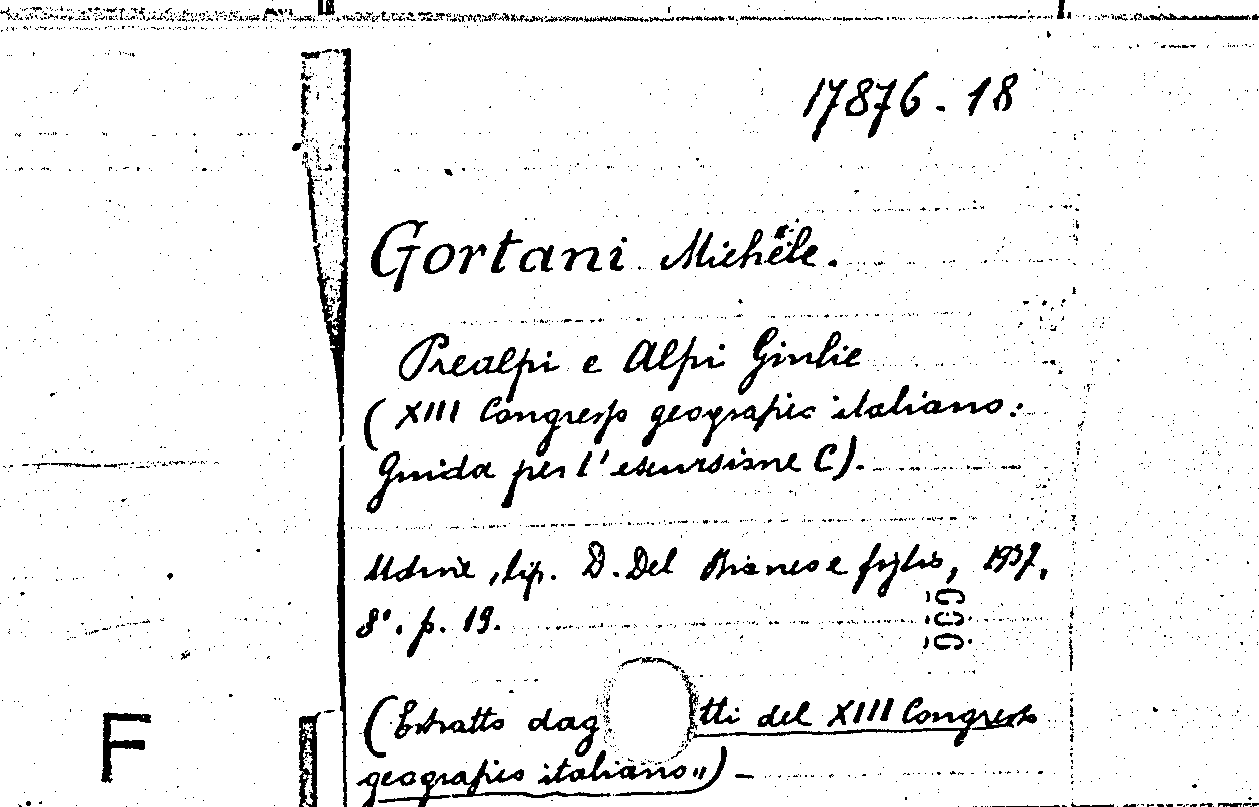 17876-18
Gortani Michele.
Prealpi e Alpi Giulie
(XIII Congresso geografico italiano:
Guida per l'escursione C).
Udine, tip. D. Del Bianco e figlio, 1937.
8°. p. 19.
(Estratto dag tti del XIII Congresso
geografico italiano")-
F